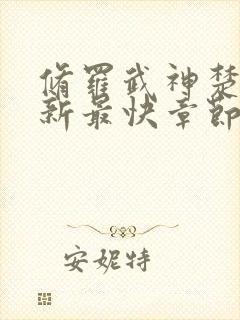 脩羅武神楚
新最快章節
安妮特